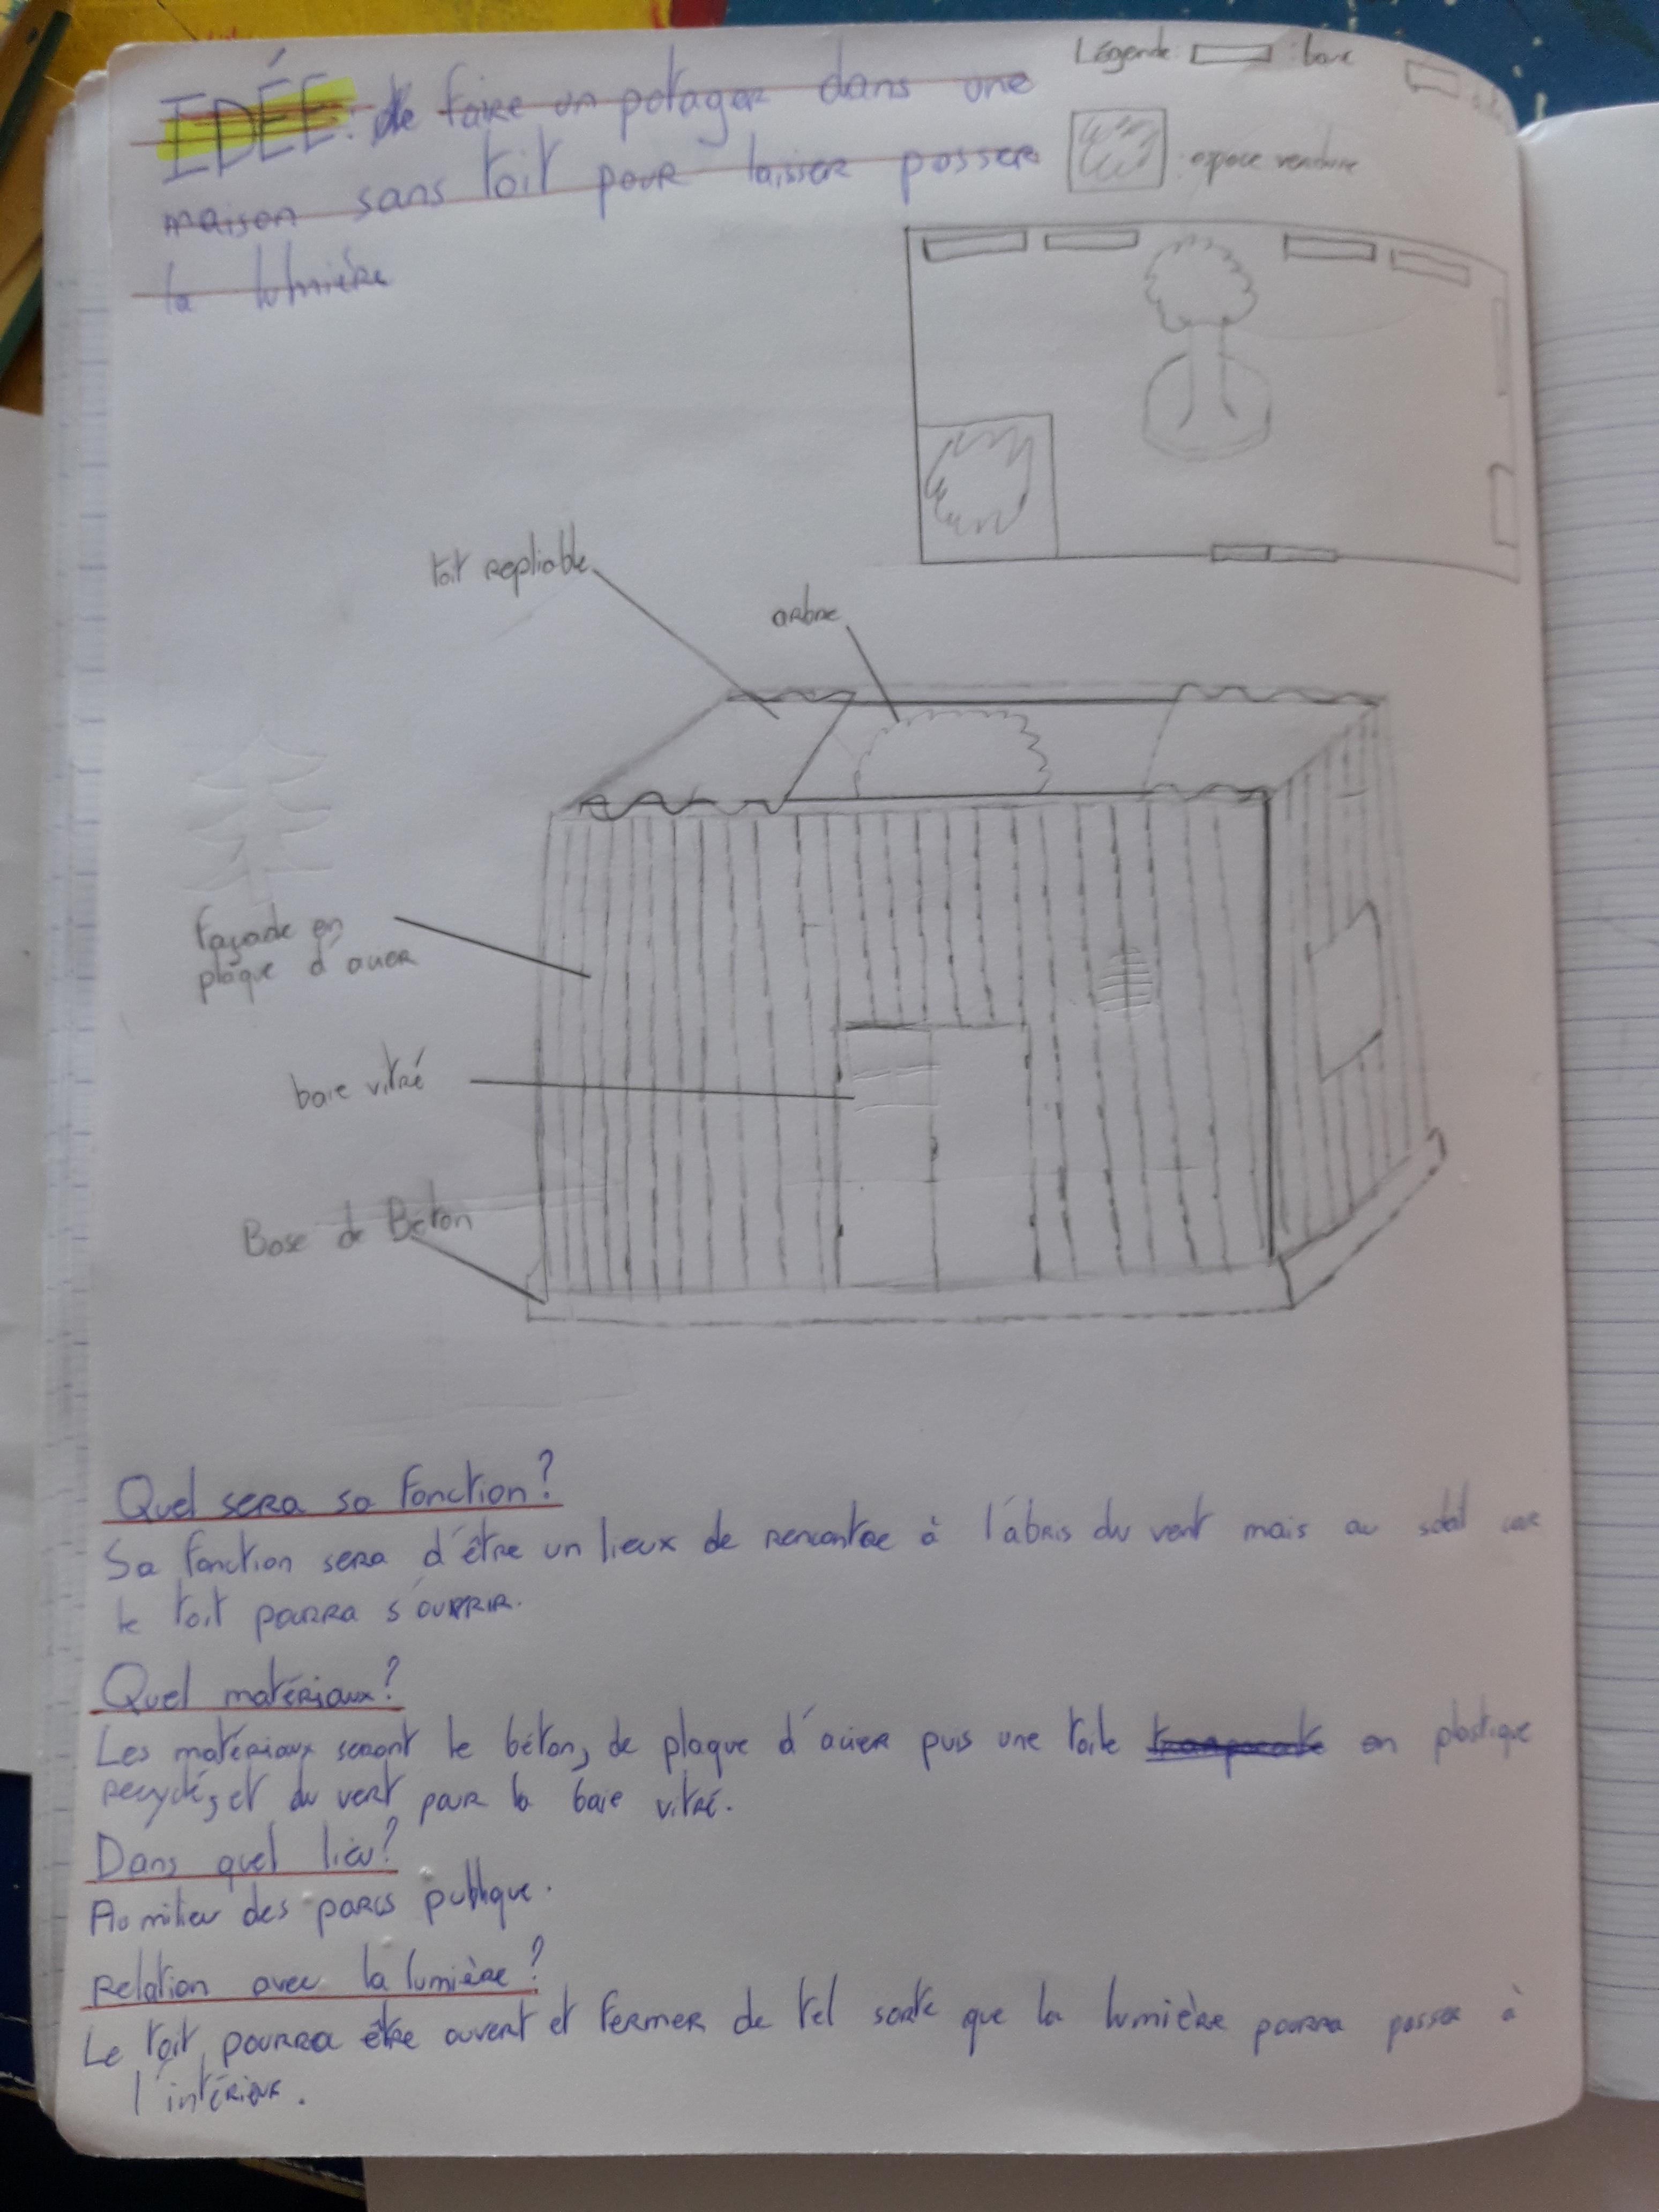 IDÉE: de faire un potager dans une
maison sans toit pour laisser passer
la lumière
Légende: : banc
: espace verdure
toit repliable
arbre
façade en
plaque d'acier
baie vitré
Base de Béton
Quel sera sa fonction?
Sa fonction sera d'être un lieux de rencontre à l'abris du vent mais au soleil car
le toit pourra s'ouvrir.
Quel matériaux?
Les matériaux seront le béton, de plaque d'acier puis une toile en plastique
recyclé, et du vert pour la baie vitré.
Dans quel lieu?
Au milieu des parcs publique.
Relation avec la lumière?
Le toit pourra être ouvert et fermer de tel sorte que la lumière pourra passer à
l'intérieur.